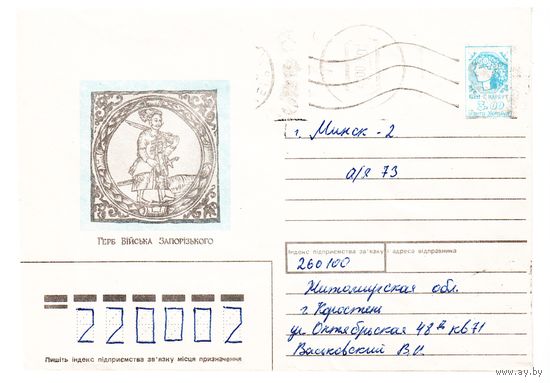 г. Минск-2
а/я 73
ГЕРБ ВІЙСЬКА ЗАПОРІЗЬКОГО
Індекс підприємства зв'язку і адреса відправника
260100
Житомирская обл.
г. Коростень
ул. Октябрьская 48 кв 71
Васьковский В.И.
220002
Пишіть індекс підприємства зв'язку місця призначення
www.ay.by